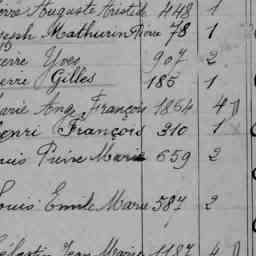 Auguste Aristide 448 1
Joseph Mathurin Pierre 78 1
Pierre Yves 907 2
Pierre Gilles 185 1
Marie Ang. François 1864 4
Henri François 310 1
Louis Pierre Marie 659 2
Louis Emile Marie 587 2
Célestin Jean Marie 1187 4